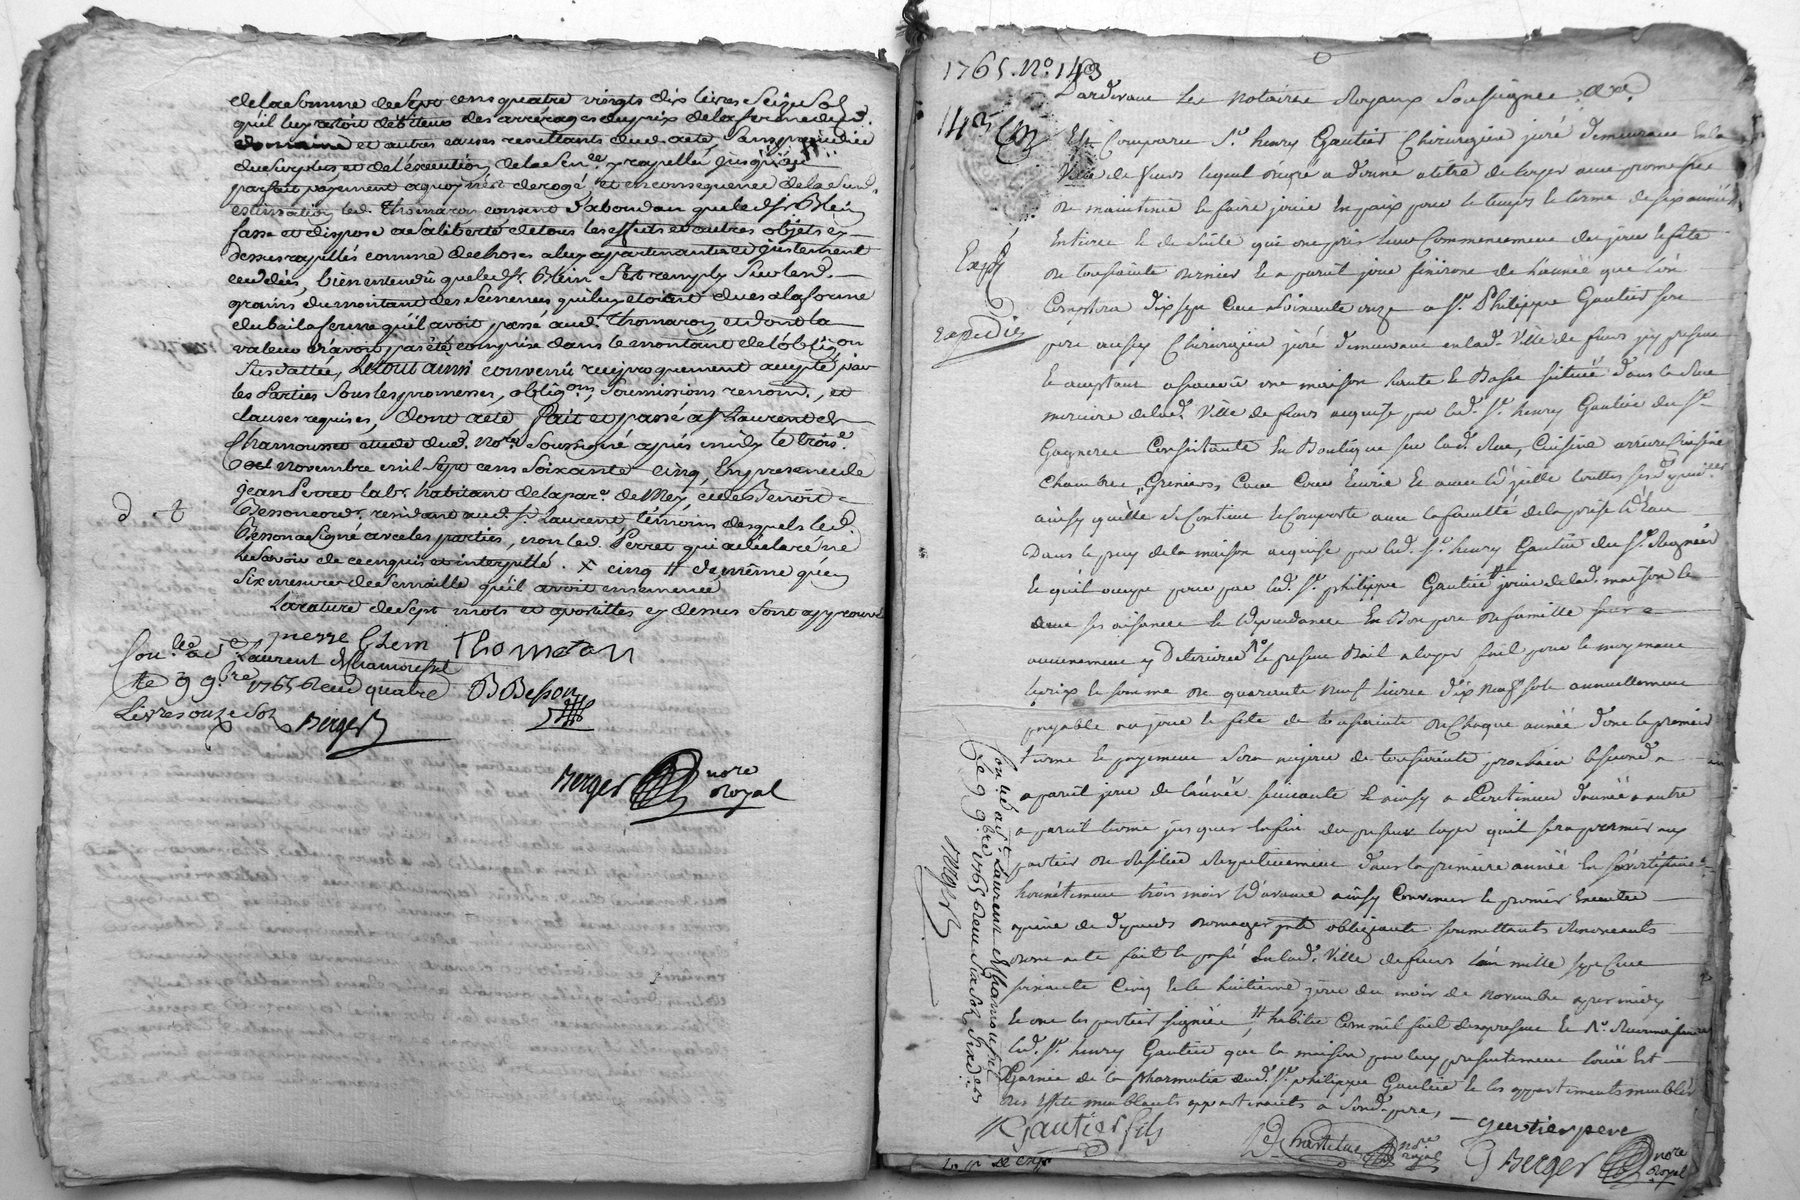 de la somme de sept cens quatre vingts dix livres seize sol
qu'il luy restoit débiteur des arrérages du prix de la ferme dud.
domaine et autres causes resultants dud. acte, sans préjudice
du surplus et de l'exécution de la sence y rapellée jusqu'au
parfait payement a quoy n'est derogé, et en consequence de la susd.
estimation led. Thomaron consent que led. Sr Blein
fasse et dispose a sa liberté de tous les effets et autres objets cy
dessus rapellés comme de choses a luy apartenantes et justement
cedées, bien entendu que led. Sr. Blein s'est remply sur les d.
grains du montant des semences qui luy etoient dues a la forme
du bail a ferme qu'il avoit passé aud. Thomaron et dont la
valeur n'avoit pas été comprise dans le montant de l'oblig.on
susdattée, Le tout ainsi convenu reciproquement accepté par
les Parties sous les promesses, oblig.ons, soumissions renon., et
clauses requises, Dont acte fait et passé a St Laurent de
Chamousset etude dud. No.re soussigné après midy le trois.e
novembre mil sept cens soixante cinq En presence de
jean Perret lab.r habitant de la par.e de Meÿ, et de Benoit
Besson cord.r resident aud. St. Laurent, témoins desquels led.
Besson a signé avec les parties, non led. Perret qui a déclaré ne
le savoir de ce enquis et interpellé. + cinq // de même qu'en
six mesures de semaille qu'il avoit ensemencé
La rature de sept mots et apostilles cy dessus sont approuvé
pierre blein Thomaron
Con.lle a St Laurent de Chamousset
le 9 9.bre 1765 Recu quatre B Besson
Livres onze sol Berger
Berger no.re Royal
1765. No. 143
Pardevant Les Notaires Royaux Soussignés
143
Est Comparu Sr. henry Gautier Chirurgien juré demeurant en la
Ville de feurs lequel de gré a donné a titre de loyer avec promesse
de maintenir et faire jouir en paix pour le temps et terme de six années
Entieres et de suite qui ont pris leur Commencement du jour et fete
de toussaints dernier et a pareil jour finiront de l'année que l'on
Comptera dix sept Cent soixante onze a Sr. Philippe Gautier son
Expediée
pere aussy Chirurgien juré demeurant en lad. Ville de feurs icy present
et acceptant a scavoir une maison haute et Basse située dans la Rue
merciere de lad. Ville de feurs acquise par led. Sr. henry Gautier du Sr.
Gagnere Consistante en Boutique sur lad. Rue, Cuisine arriere Cuisine
Chambres, Greniers, Cave Cour Ecurie
ainsy qu'elle se Contient et Comporte avec la faculté de la prise d'Eau
Dans le puy de la maison acquise par led. Sr. henry Gautier du Sr.
par led. Sr. philippe Gautier jouir de lad. maison et
ses aisances et dependances En Bon pere de famille sans
aucunement y Deteriorer le present Bail a loyer fait pour et moyenant
le prix et somme de quarante neuf livres dix neuf sols annuellement
payable au jour et fete de toussaints de Chaque année dont le premier
terme et payement sera au jour de toussaints prochain le second a
a pareil jour de l'année suivante et ainsy a Continuer d'année a autre
a pareil terme jusques En fin du present loyer qu'il sera permis aux
parties de Resilier Respectivement dans la premiere année En s'avertissant
honnétement trois mois d'avance ainsy Convenu et promis Executer
a peine de depends dommages jnts obligeants soumettants Renoncants
dont acte fait et passé En lad. Ville de feurs l'an mille sept Cent
soixante Cinq et le huitieme jour du mois de Novembre apres midy
et ont les parties signées,
led. Sr. henry Gautier que la maison par luy presentement louée Est
Garnie de la pharmatie dud. Sr. philippe Gautier et les appartements meublés
des effets meublants appartenants a sond. pere,
Con.lle a St. Laurent de Chamousset
Le 9 9.bre 1765 Recu six sol six d.ers
Berger
Gautier fils
gautier pere
no.re royal
Berger no.re Royal